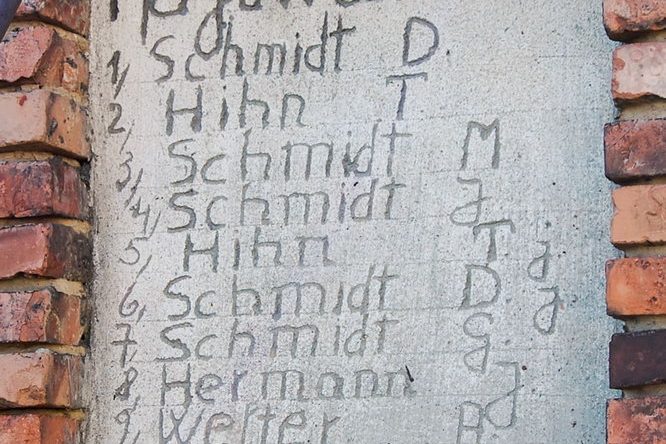 1, Schmidt D
2, Hihn T
3, Schmidt M
4, Schmidt J
5, Hihn T. j
6, Schmidt D. j
7, Schmidt G.
8, Hermann J
9, Welter A.